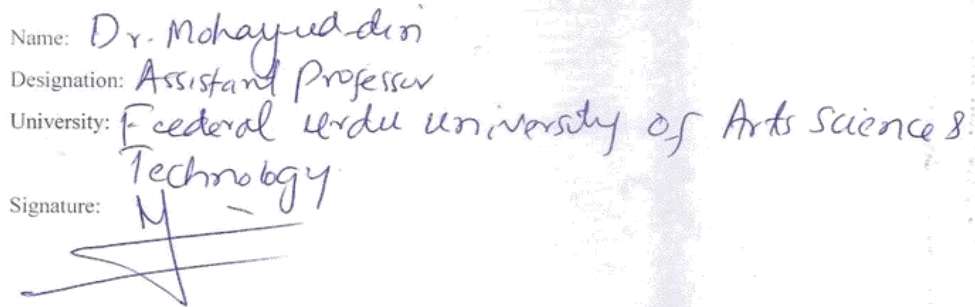 Name: Dr. Mohayud-din
Designation: Assistant Professor
University: Fcederal urdu university of Arts Science &
Technology
Signature: